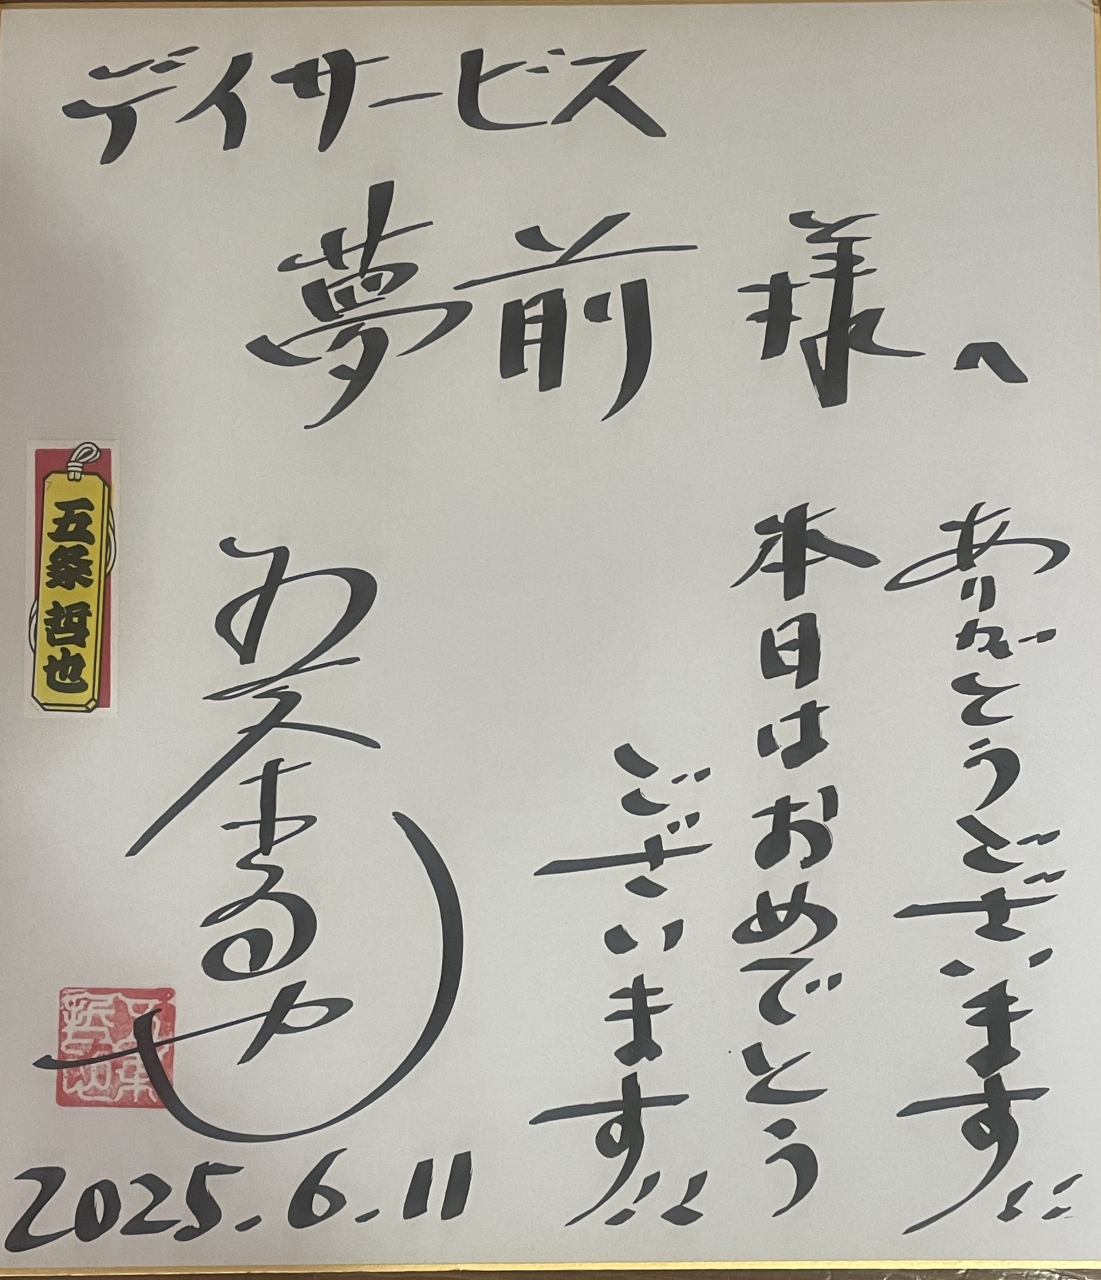 デイサービス
夢前 様へ
ありがとうございます!!
本日はおめでとう
ございます!!
五条哲也
五条哲也
2025.6.11
五条哲也